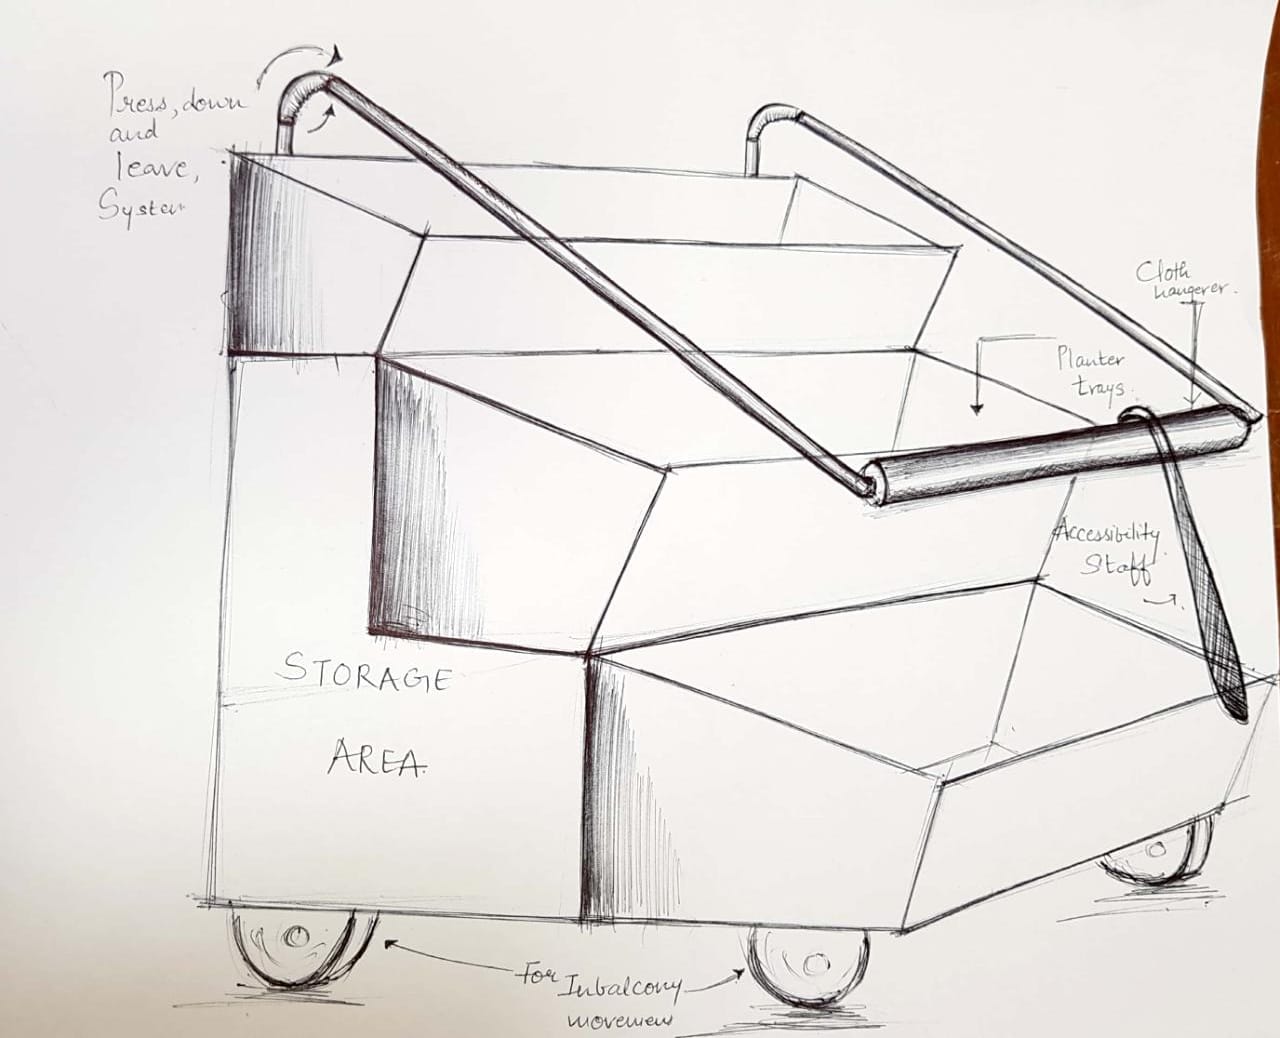 Press, down
and
leave,
System
Cloth
hangerer.
Planter
trays.
Accessibility
Staff
STORAGE
AREA.
For Inbalcony
movement